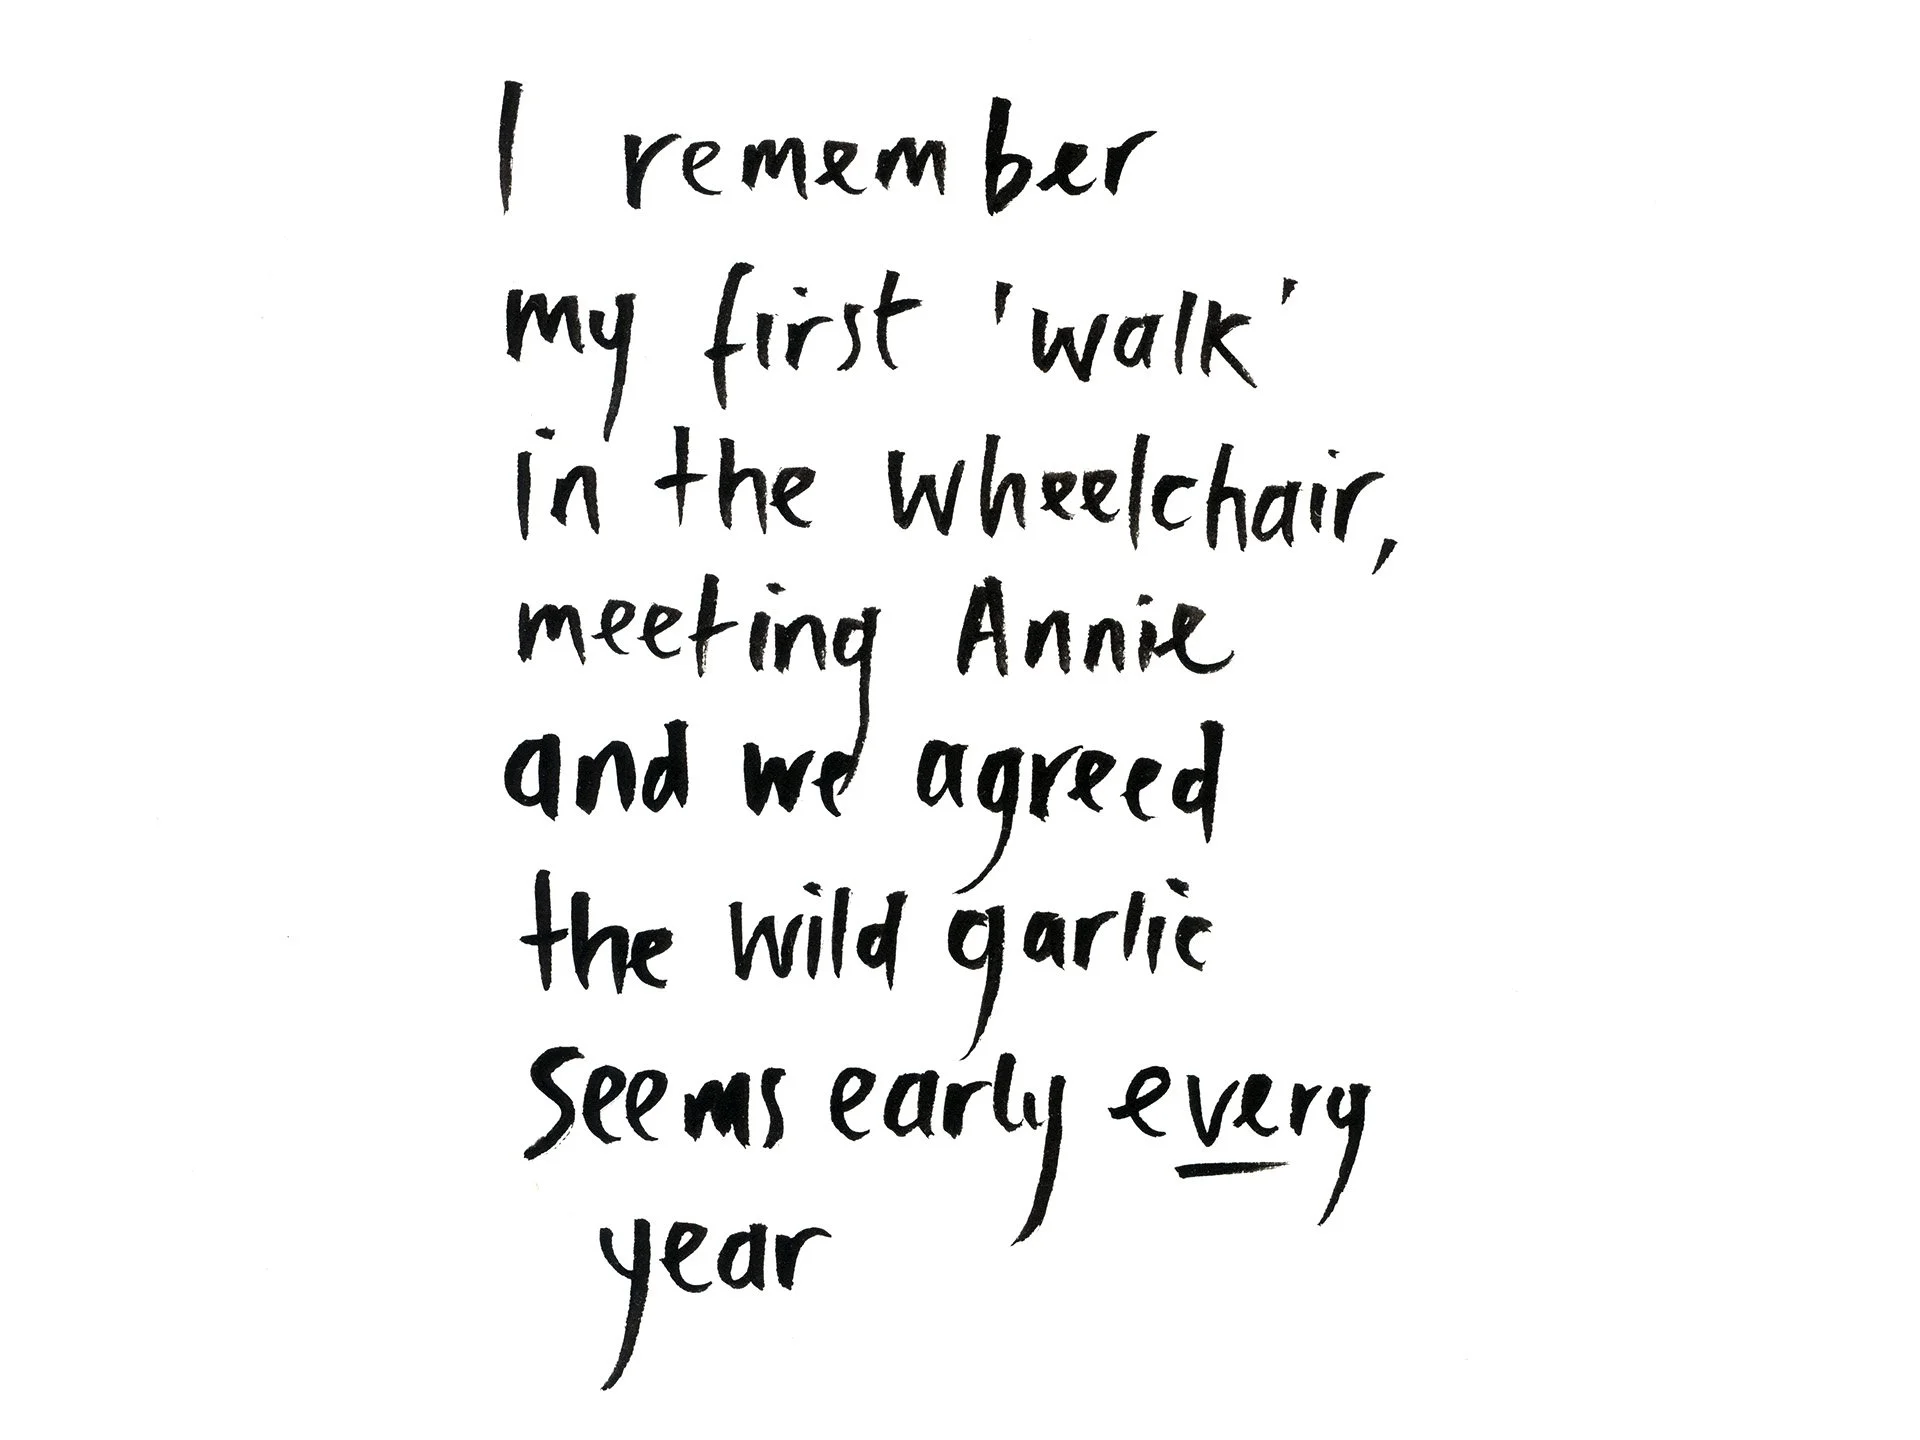 I remember
my first 'walk'
in the wheelchair,
meeting Annie
and we agreed
the wild garlic
seems early every
year